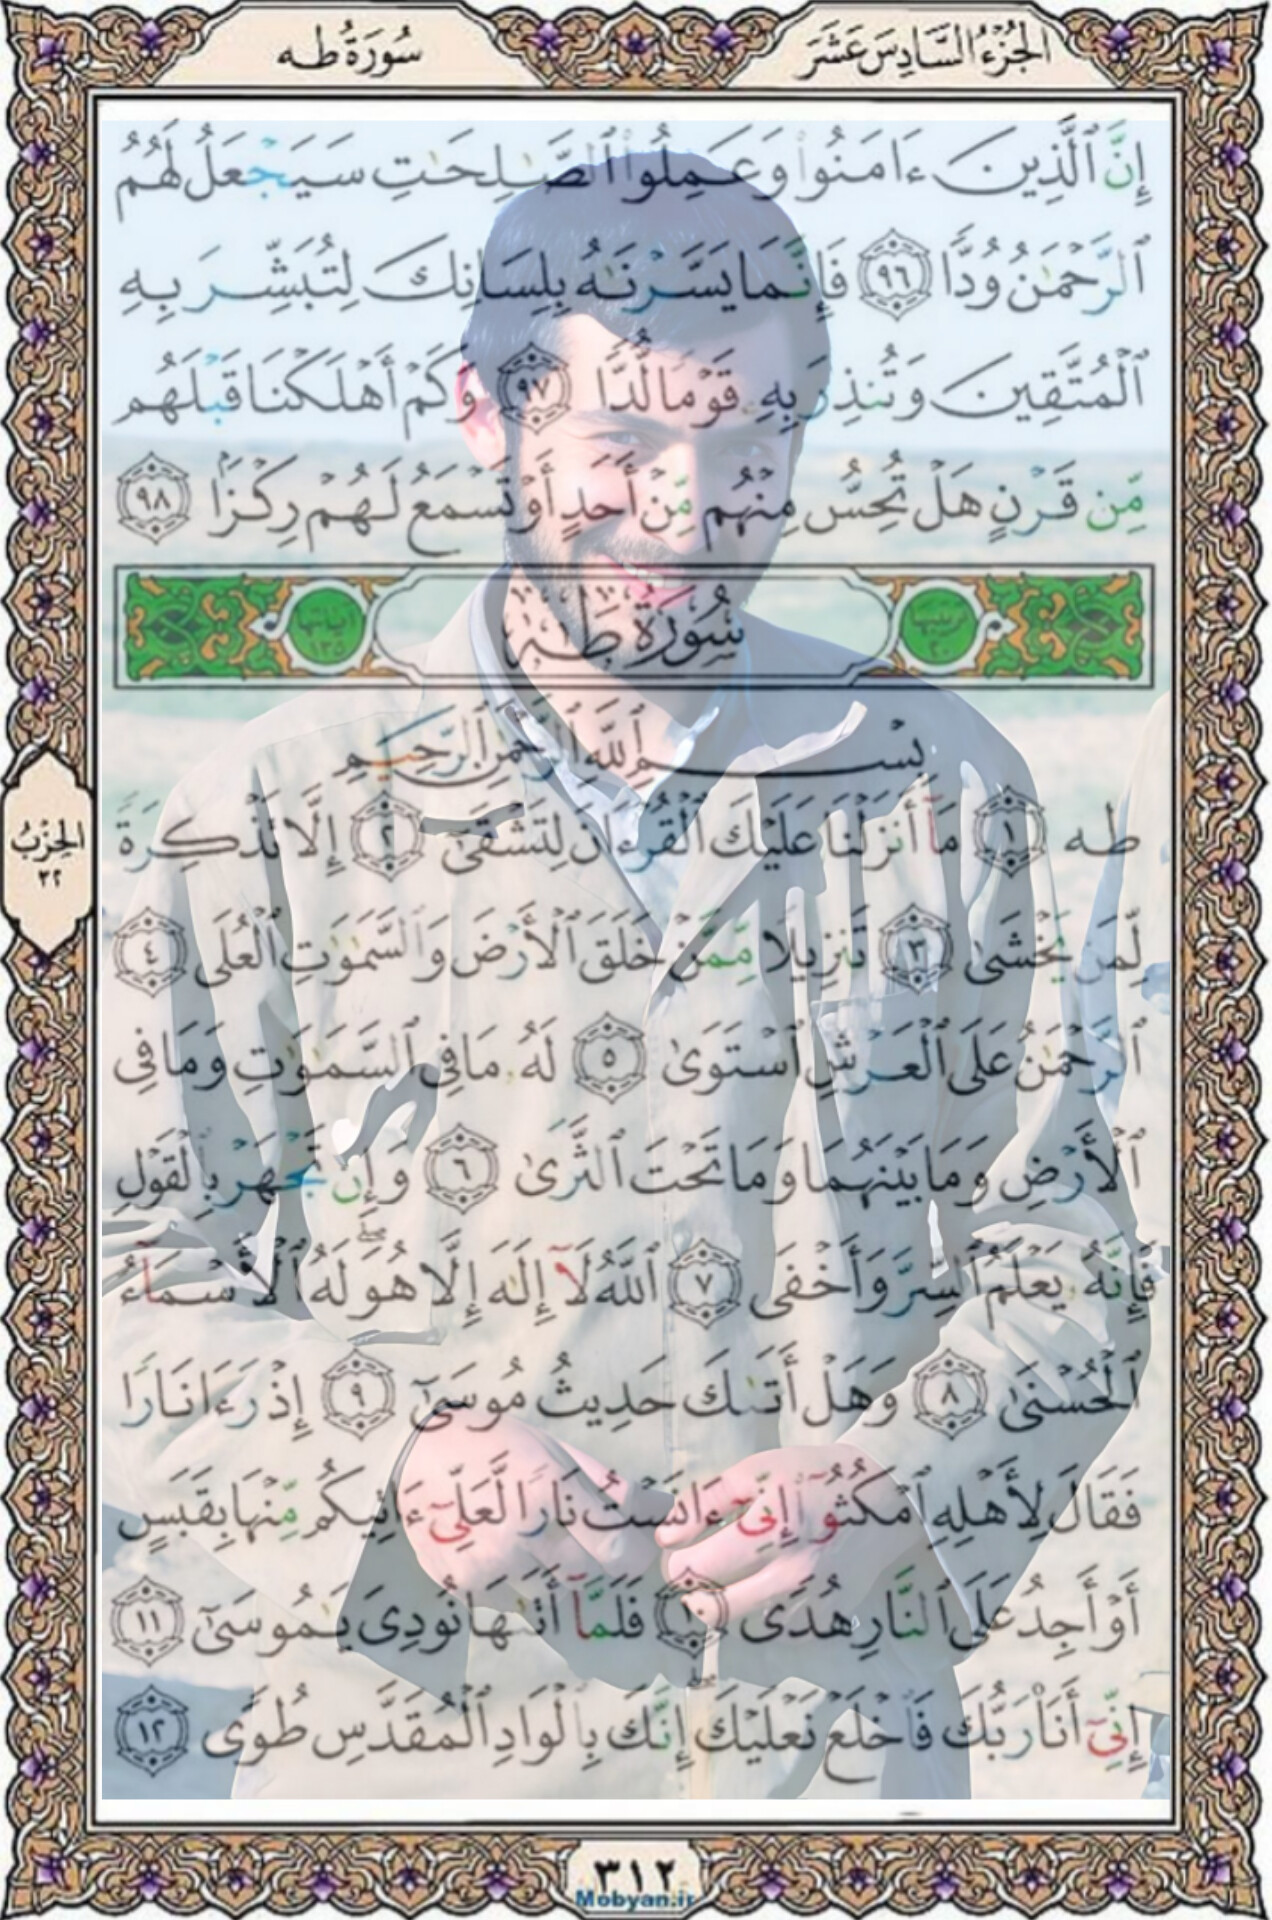 الجُزءُ السَّادِسَ عَشَرَ
سُورَةُ طه
إِنَّ ٱلَّذِينَ ءَامَنُواْ وَعَمِلُواْ ٱلصَّٰلِحَٰتِ سَيَجْعَلُ لَهُمُ
ٱلرَّحْمَٰنُ وُدًّا ٩٦ فَإِنَّمَا يَسَّرْنَٰهُ بِلِسَانِكَ لِتُبَشِّرَ بِهِ
ٱلْمُتَّقِينَ وَتُنذِرَ بِهِۦ قَوْمًا لُّدًّا ٩٧ وَكَمْ أَهْلَكْنَا قَبْلَهُم
مِّن قَرْنٍ هَلْ تُحِسُّ مِنْهُم مِّنْ أَحَدٍ أَوْ تَسْمَعُ لَهُمْ رِكْزًۢا ٩٨
ترتيبها ٢٠
سُورَةُ طه
آياتها ١٣٥
بِسْمِ ٱللَّهِ ٱلرَّحْمَٰنِ ٱلرَّحِيمِ
طه ١ مَآ أَنزَلْنَا عَلَيْكَ ٱلْقُرْءَانَ لِتَشْقَىٰٓ ٢ إِلَّا تَذْكِرَةً
لِّمَن يَخْشَىٰ ٣ تَنزِيلًا مِّمَّنْ خَلَقَ ٱلْأَرْضَ وَٱلسَّمَٰوَٰتِ ٱلْعُلَى ٤
ٱلرَّحْمَٰنُ عَلَى ٱلْعَرْشِ ٱسْتَوَىٰ ٥ لَهُۥ مَا فِى ٱلسَّمَٰوَٰتِ وَمَا فِى
ٱلْأَرْضِ وَمَا بَيْنَهُمَا وَمَا تَحْتَ ٱلثَّرَىٰ ٦ وَإِن تَجْهَرْ بِٱلْقَوْلِ
فَإِنَّهُۥ يَعْلَمُ ٱلسِّرَّ وَأَخْفَى ٧ ٱللَّهُ لَآ إِلَٰهَ إِلَّا هُوَ ۖ لَهُ ٱلْأَسْمَآءُ
ٱلْحُسْنَىٰ ٨ وَهَلْ أَتَىٰكَ حَدِيثُ مُوسَىٰٓ ٩ إِذْ رَءَا نَارًا
فَقَالَ لِأَهْلِهِ ٱمْكُثُوٓاْ إِنِّىٓ ءَانَسْتُ نَارًا لَّعَلِّىٓ ءَاتِيكُم مِّنْهَا بِقَبَسٍ
أَوْ أَجِدُ عَلَى ٱلنَّارِ هُدًى ١٠ فَلَمَّآ أَتَىٰهَا نُودِىَ يَٰمُوسَىٰٓ ١١
إِنِّىٓ أَنَا۠ رَبُّكَ فَٱخْلَعْ نَعْلَيْكَ ۖ إِنَّكَ بِٱلْوَادِ ٱلْمُقَدَّسِ طُوًى ١٢
الحِزْبُ
٣٢
٣١٢
Mobyan.ir